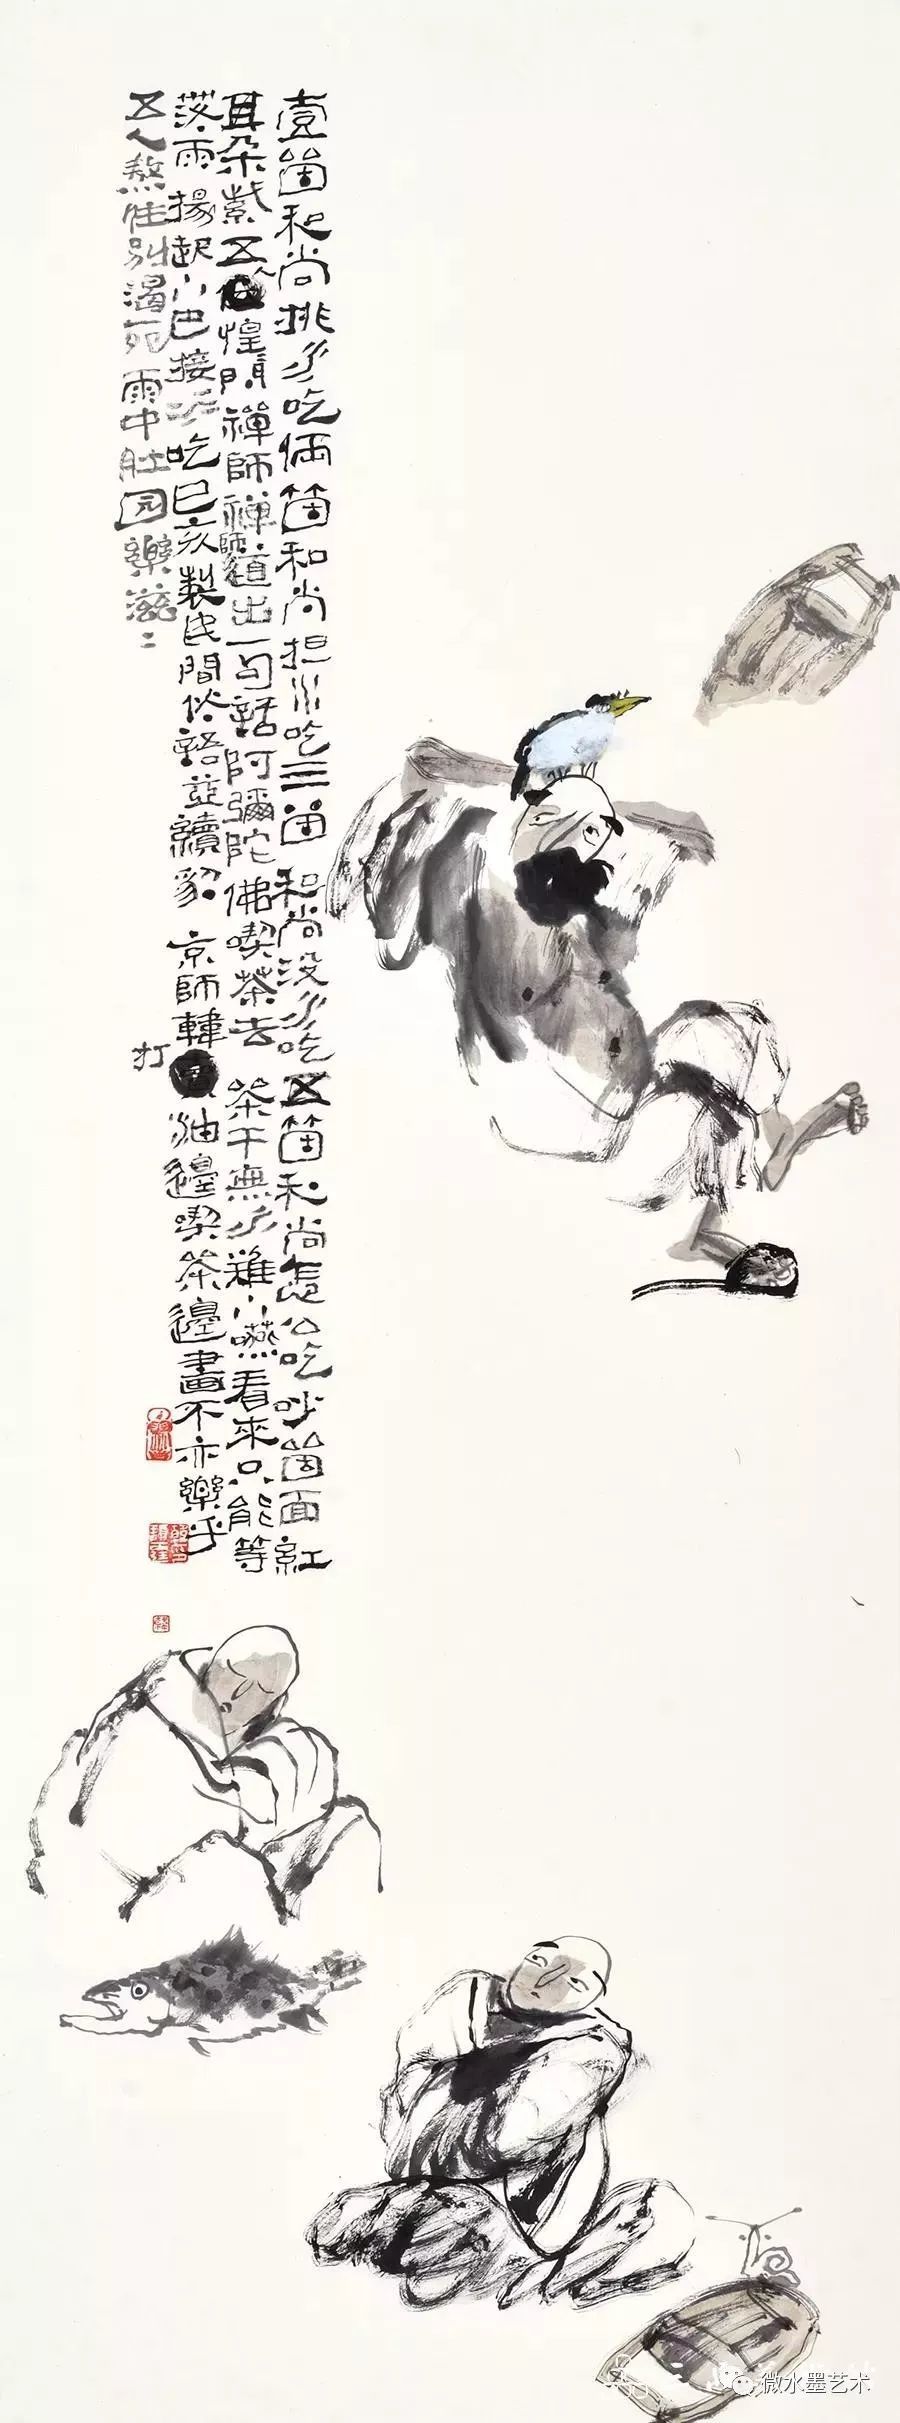 壹箇和尚挑水吃俩箇和尚担水吃三箇和尚没水吃五箇和尚怎么吃吵箇面红
耳朵紫五惶閒禅師禅師道出一句話阿彌陀佛喫茶去茶干無水難小嚥看來只能等
落雨揚起小巴接水吃己亥製民間俗語並續貂京師韓油邊喫茶邊畫不亦樂乎
打
五人熬住别渴死雨中肚圆樂滋滋
微水墨艺术